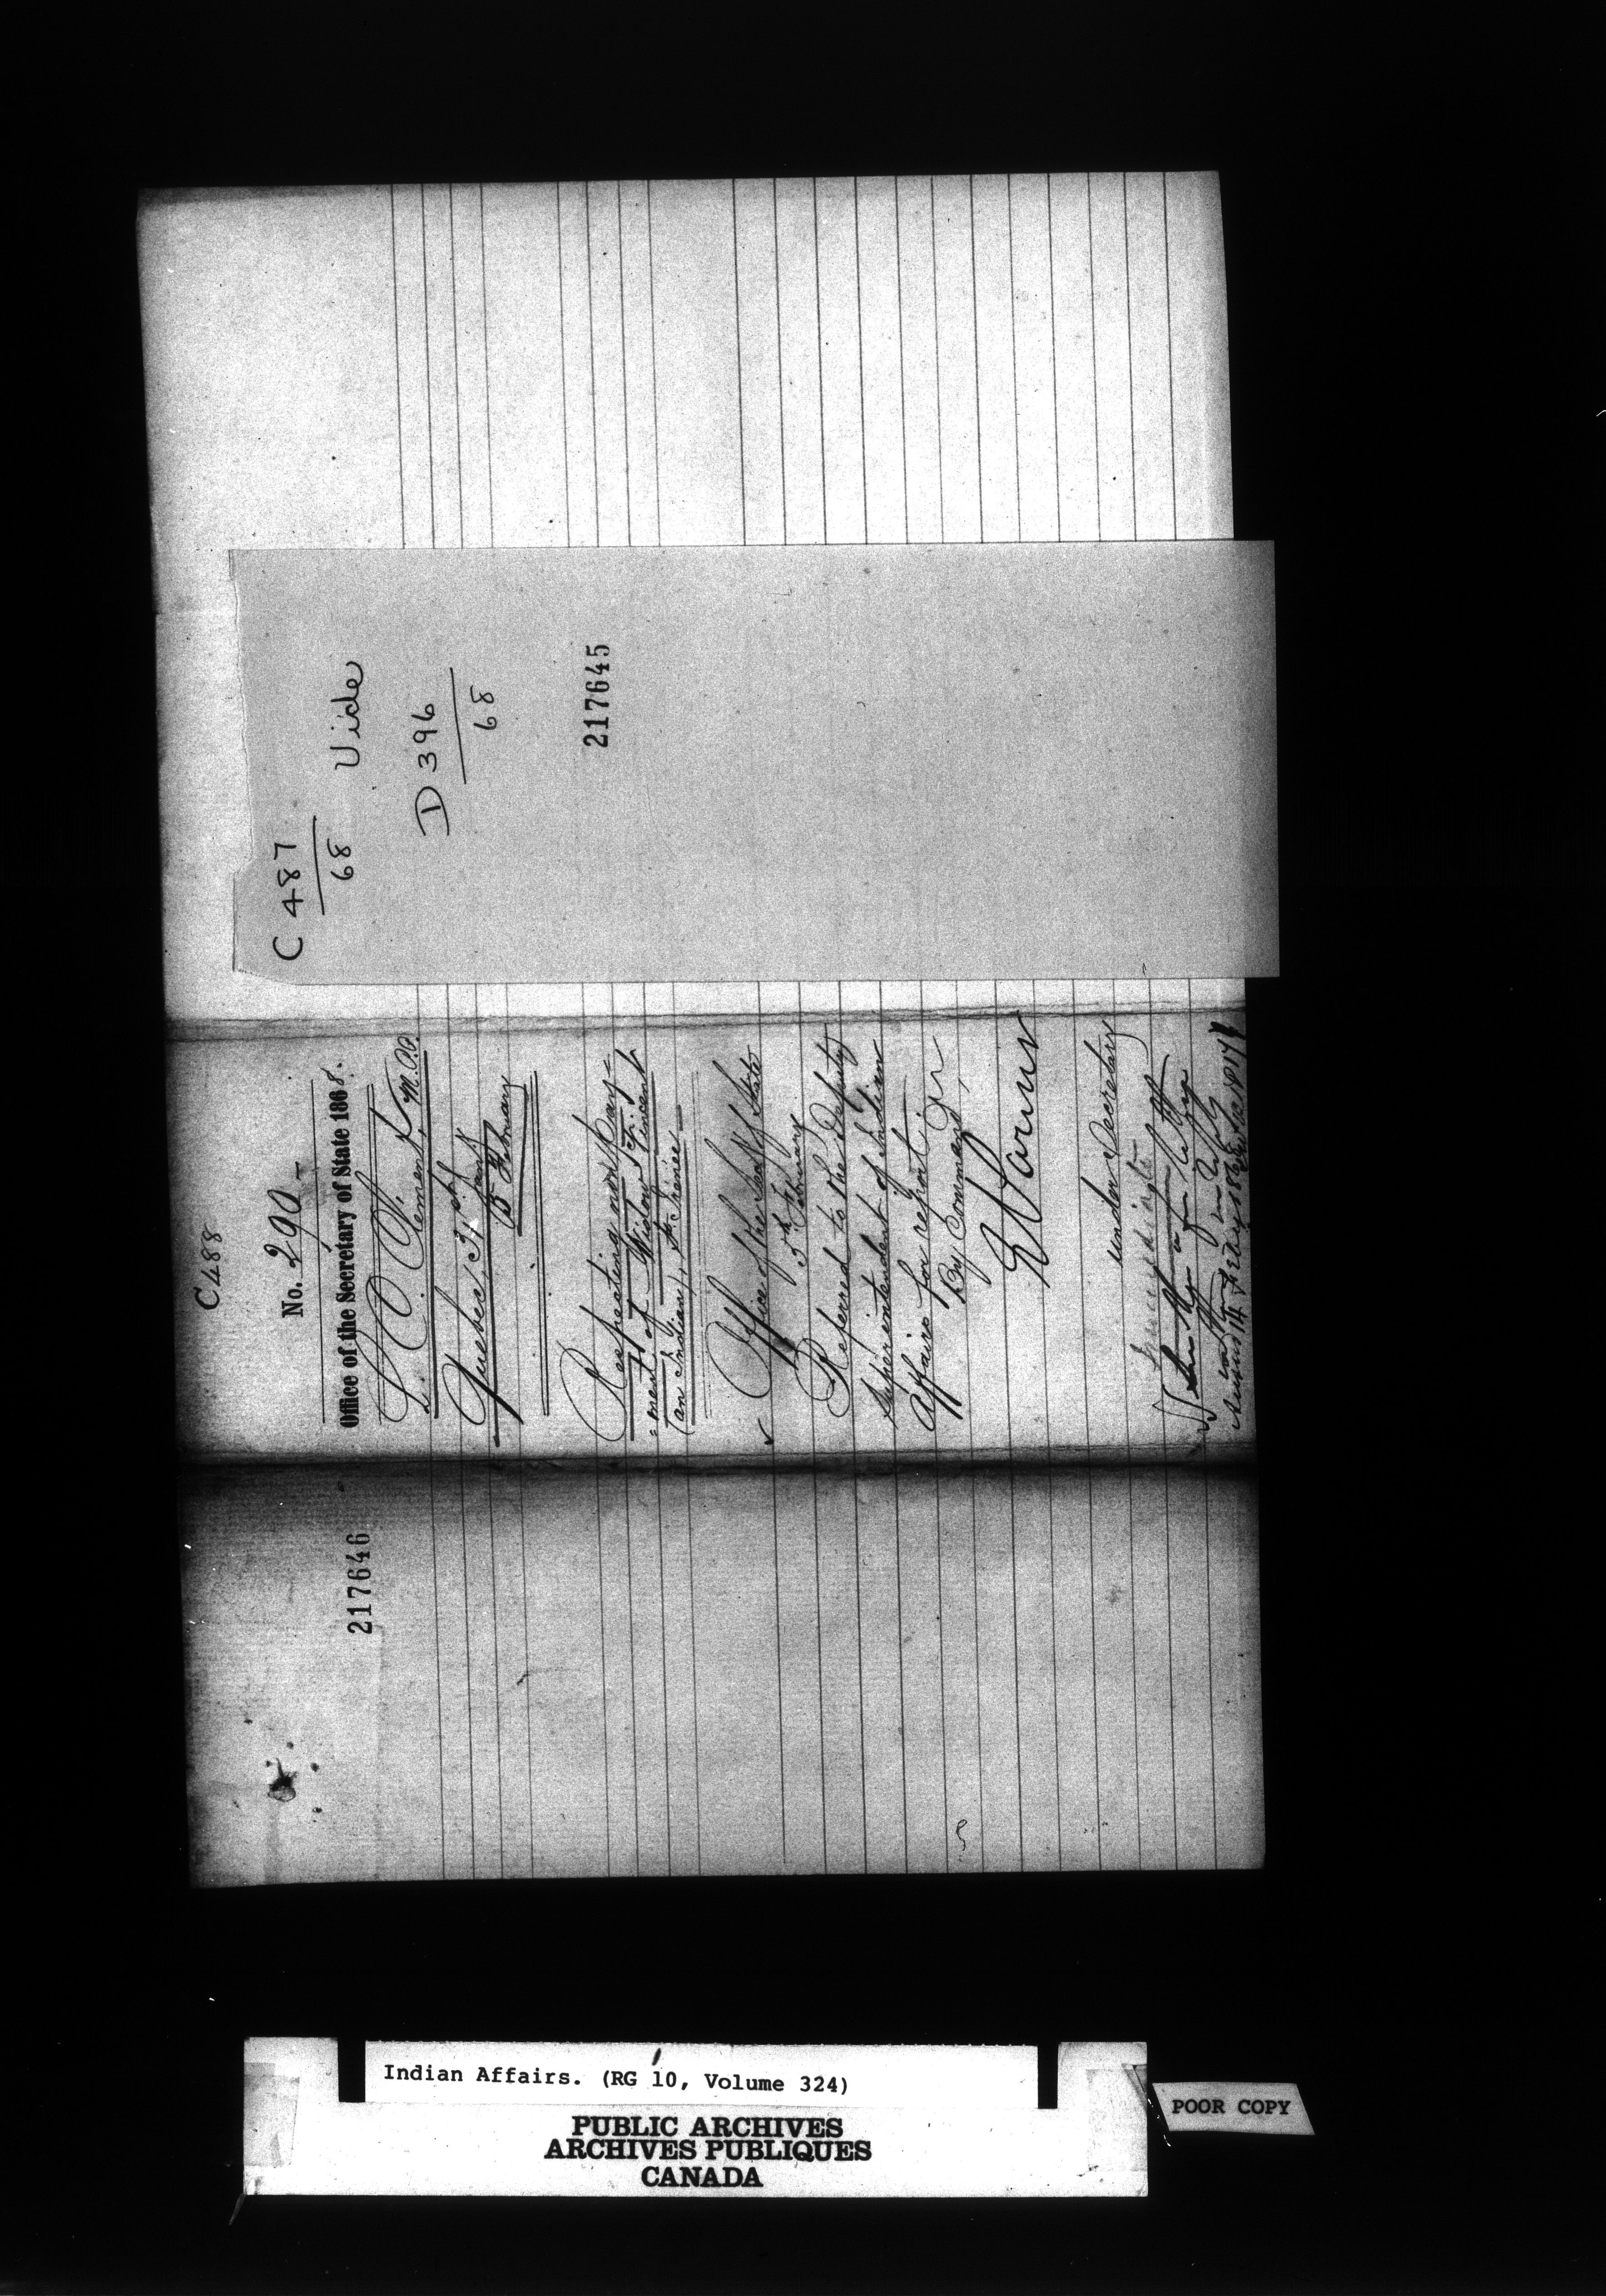 C 487
68
Vide
D 396
68
217645
C488
No. 290-
Office of the Secretary of State 1868.
L. C. Clement, M.P.P.
Quebec, 31st Jany
5 February
Respecting non pay=
=ment of Widow Vincent
(an Indian), St. Irénée
Office of the Secy of State
5th February
Referred to the Deputy
Superintendent of Indian
Affairs for report
By Command,
E Parent
Under Secretary
217646
Indian Affairs. (RG 10, Volume 324)
PUBLIC ARCHIVES
ARCHIVES PUBLIQUES
CANADA
POOR COPY